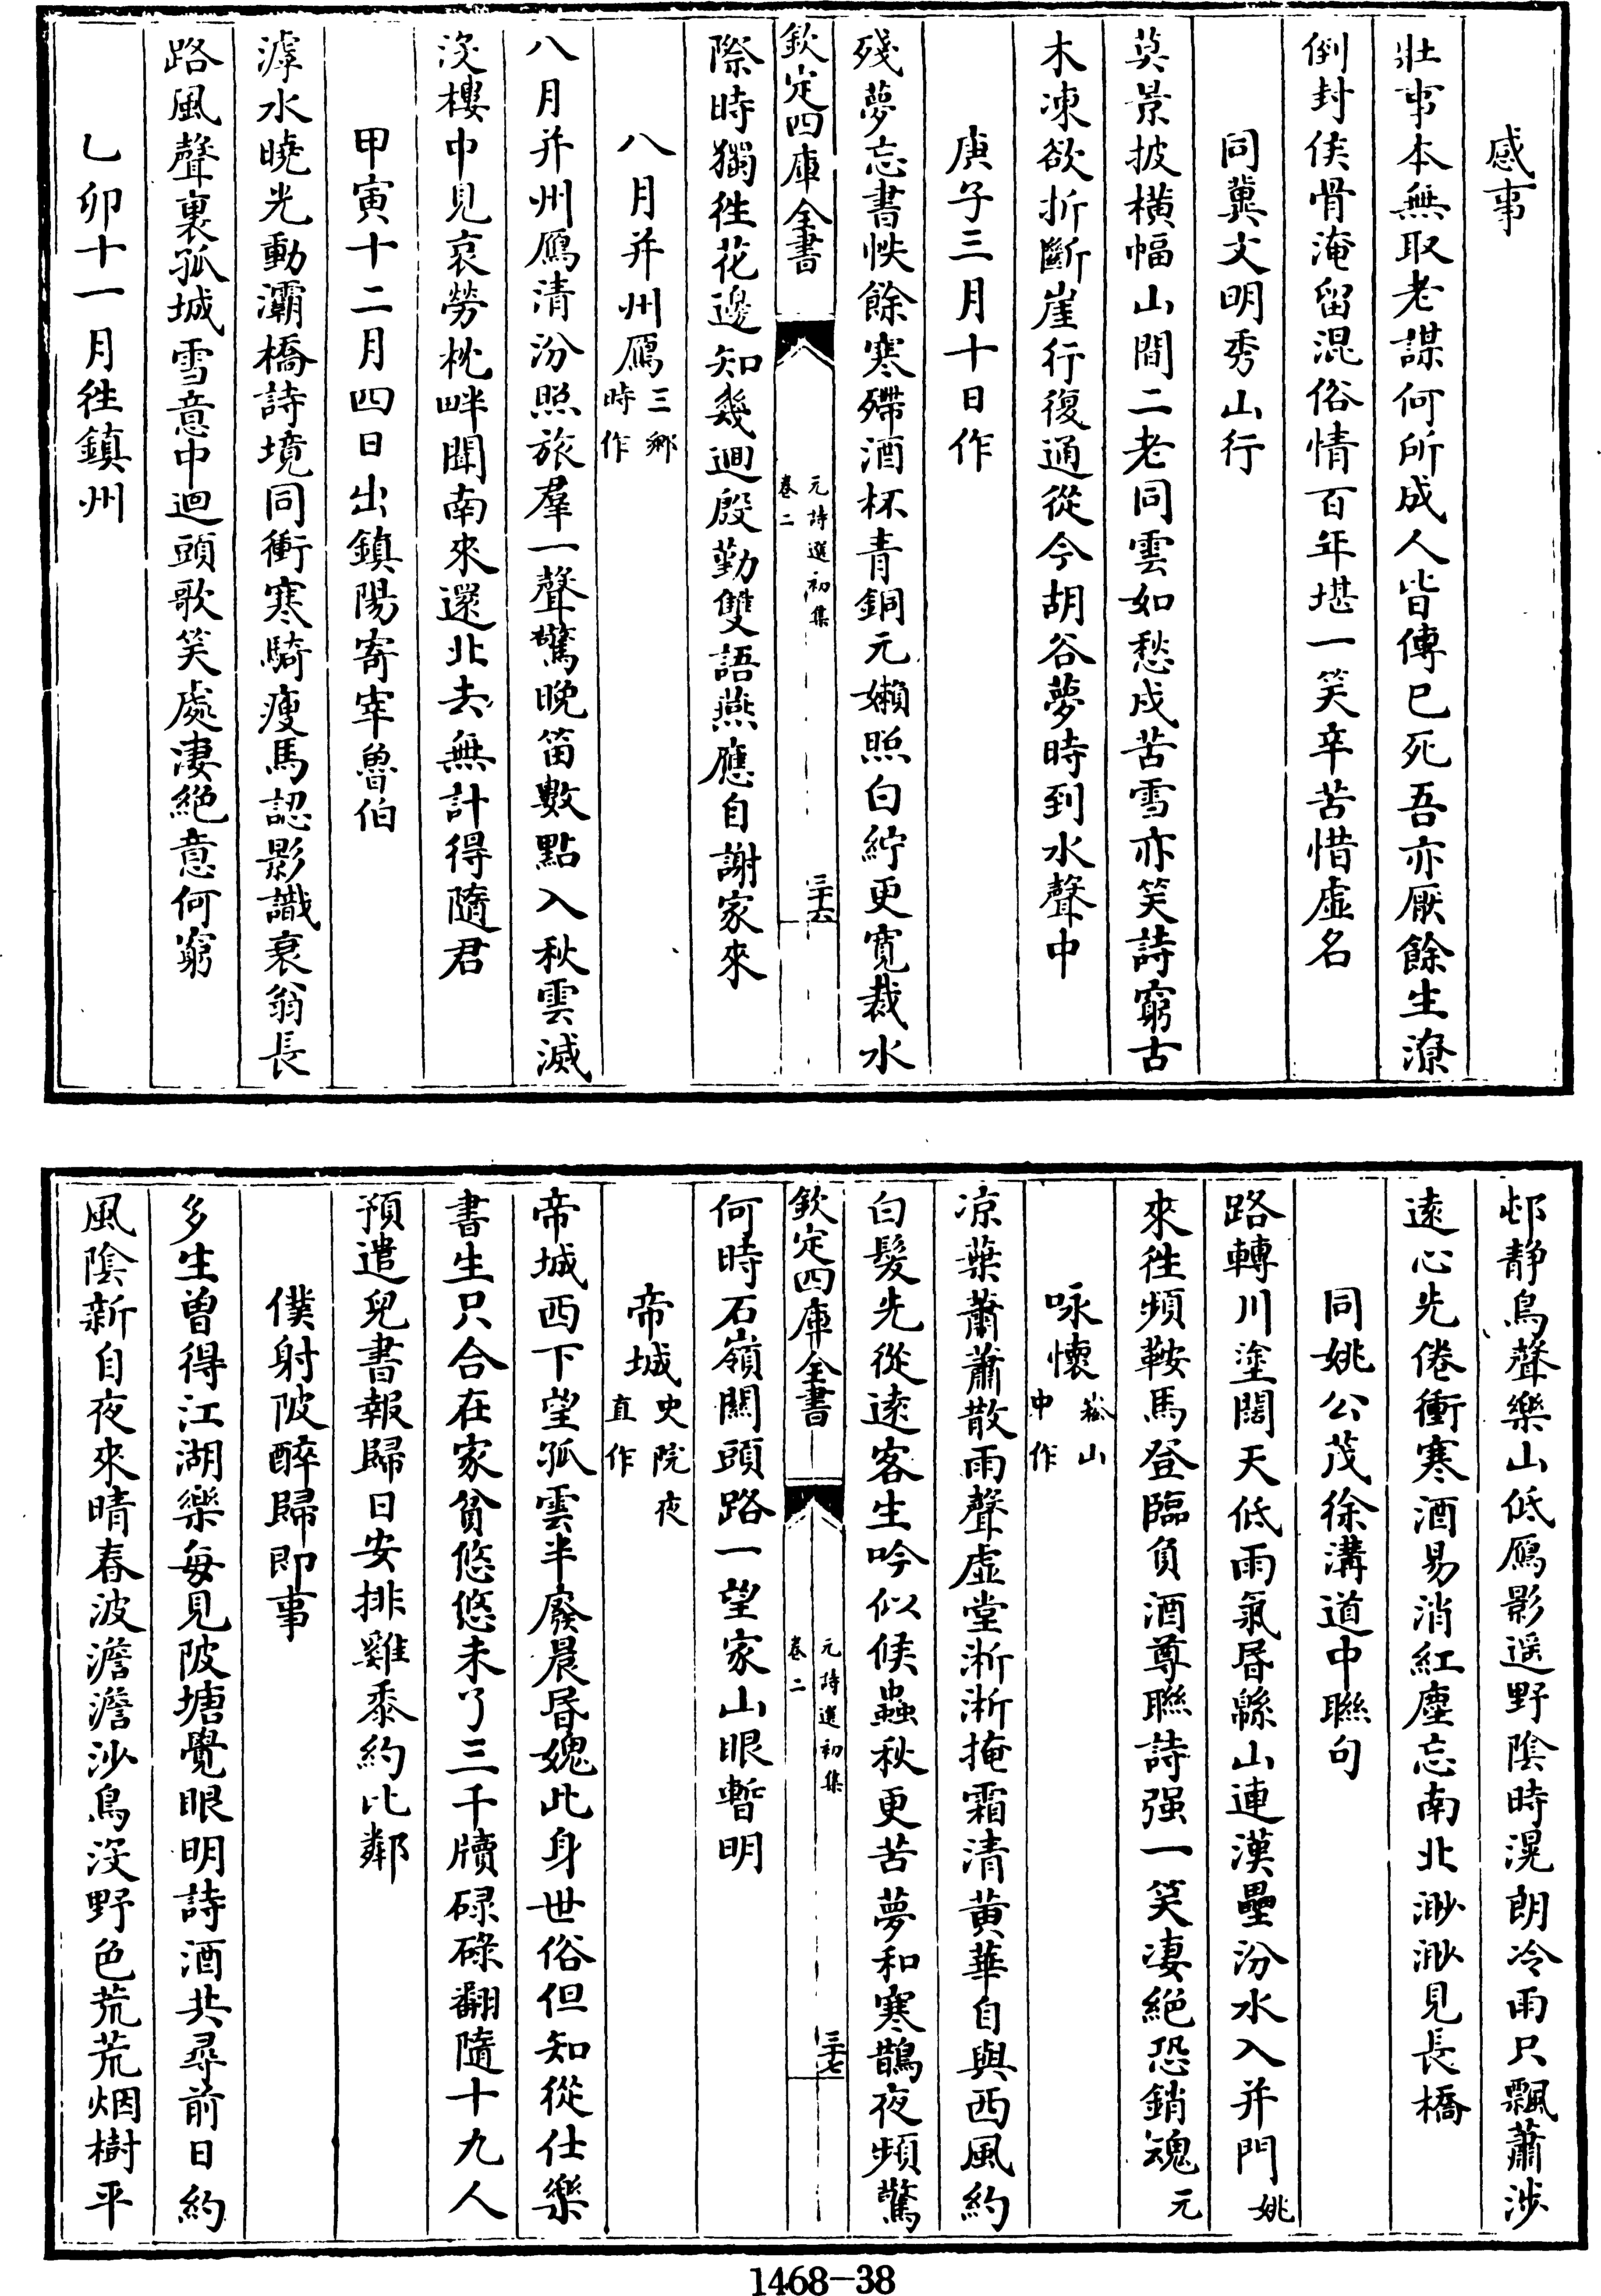 感事
壯事本無取老謀何所成人皆傳已死吾亦厭餘生潦
倒封侯骨淹留混俗情百年堪一笑辛苦惜虛名
同冀丈明秀山行
莫景披橫幅山間二老同雲如愁戍苦雪亦笑詩窮古
木凍欲折斷崖行復通從今胡谷夢時到水聲中
庚子三月十日作
殘夢忘書帙餘寒殢酒杯青銅元嬾照白紵更寛裁水
欽定四庫全書
元詩選初集
卷二
三十六
際時獨徃花邊知幾迴殷勤雙語燕應自謝家來
八月并州鴈三鄉時作
八月并州鴈清汾照旅羣一聲驚晚笛數點入秋雲滅
沒樓中見哀勞枕畔聞南來還北去無計得隨君
甲寅十二月四日出鎮陽寄宰魯伯
滹水曉光動灞橋詩境同衝寒騎瘦馬認影識衰翁長
路風聲裏孤城雪意中迴頭歌笑處淒絕意何窮
乙卯十一月徃鎮州
邨靜鳥聲樂山低鴈影遥野陰時滉朗冷雨只飄蕭涉
遠心先倦衝寒酒易消紅塵忘南北渺渺見長橋
同姚公茂徐溝道中聯句
路轉川塗闊天低雨氣昏緜山連漢壘汾水入并門姚
來徃頻鞍馬登臨負酒尊聯詩强一笑凄絕恐銷魂元
咏懷崧山中作
凉葉蕭蕭散雨聲虛堂淅淅掩霜清黄華自與西風約
白髮先從逺客生吟似候蟲秋更苦夢和寒鵲夜頻驚
欽定四庫全書
元詩選初集
卷二
三十七
何時石嶺關頭路一望家山眼暫明
帝城史院夜直作
帝城西下望孤雲半廢晨昏媿此身世俗但知從仕樂
書生只合在家貧悠悠未了三千牘碌碌翻隨十九人
預遣兒書報歸日安排雞黍約比鄰
僕射陂醉歸即事
多生曾得江湖樂每見陂塘覺眼明詩酒共尋前日約
風陰新自夜來晴春波澹澹沙鳥沒野色荒荒烟樹平
1468-38